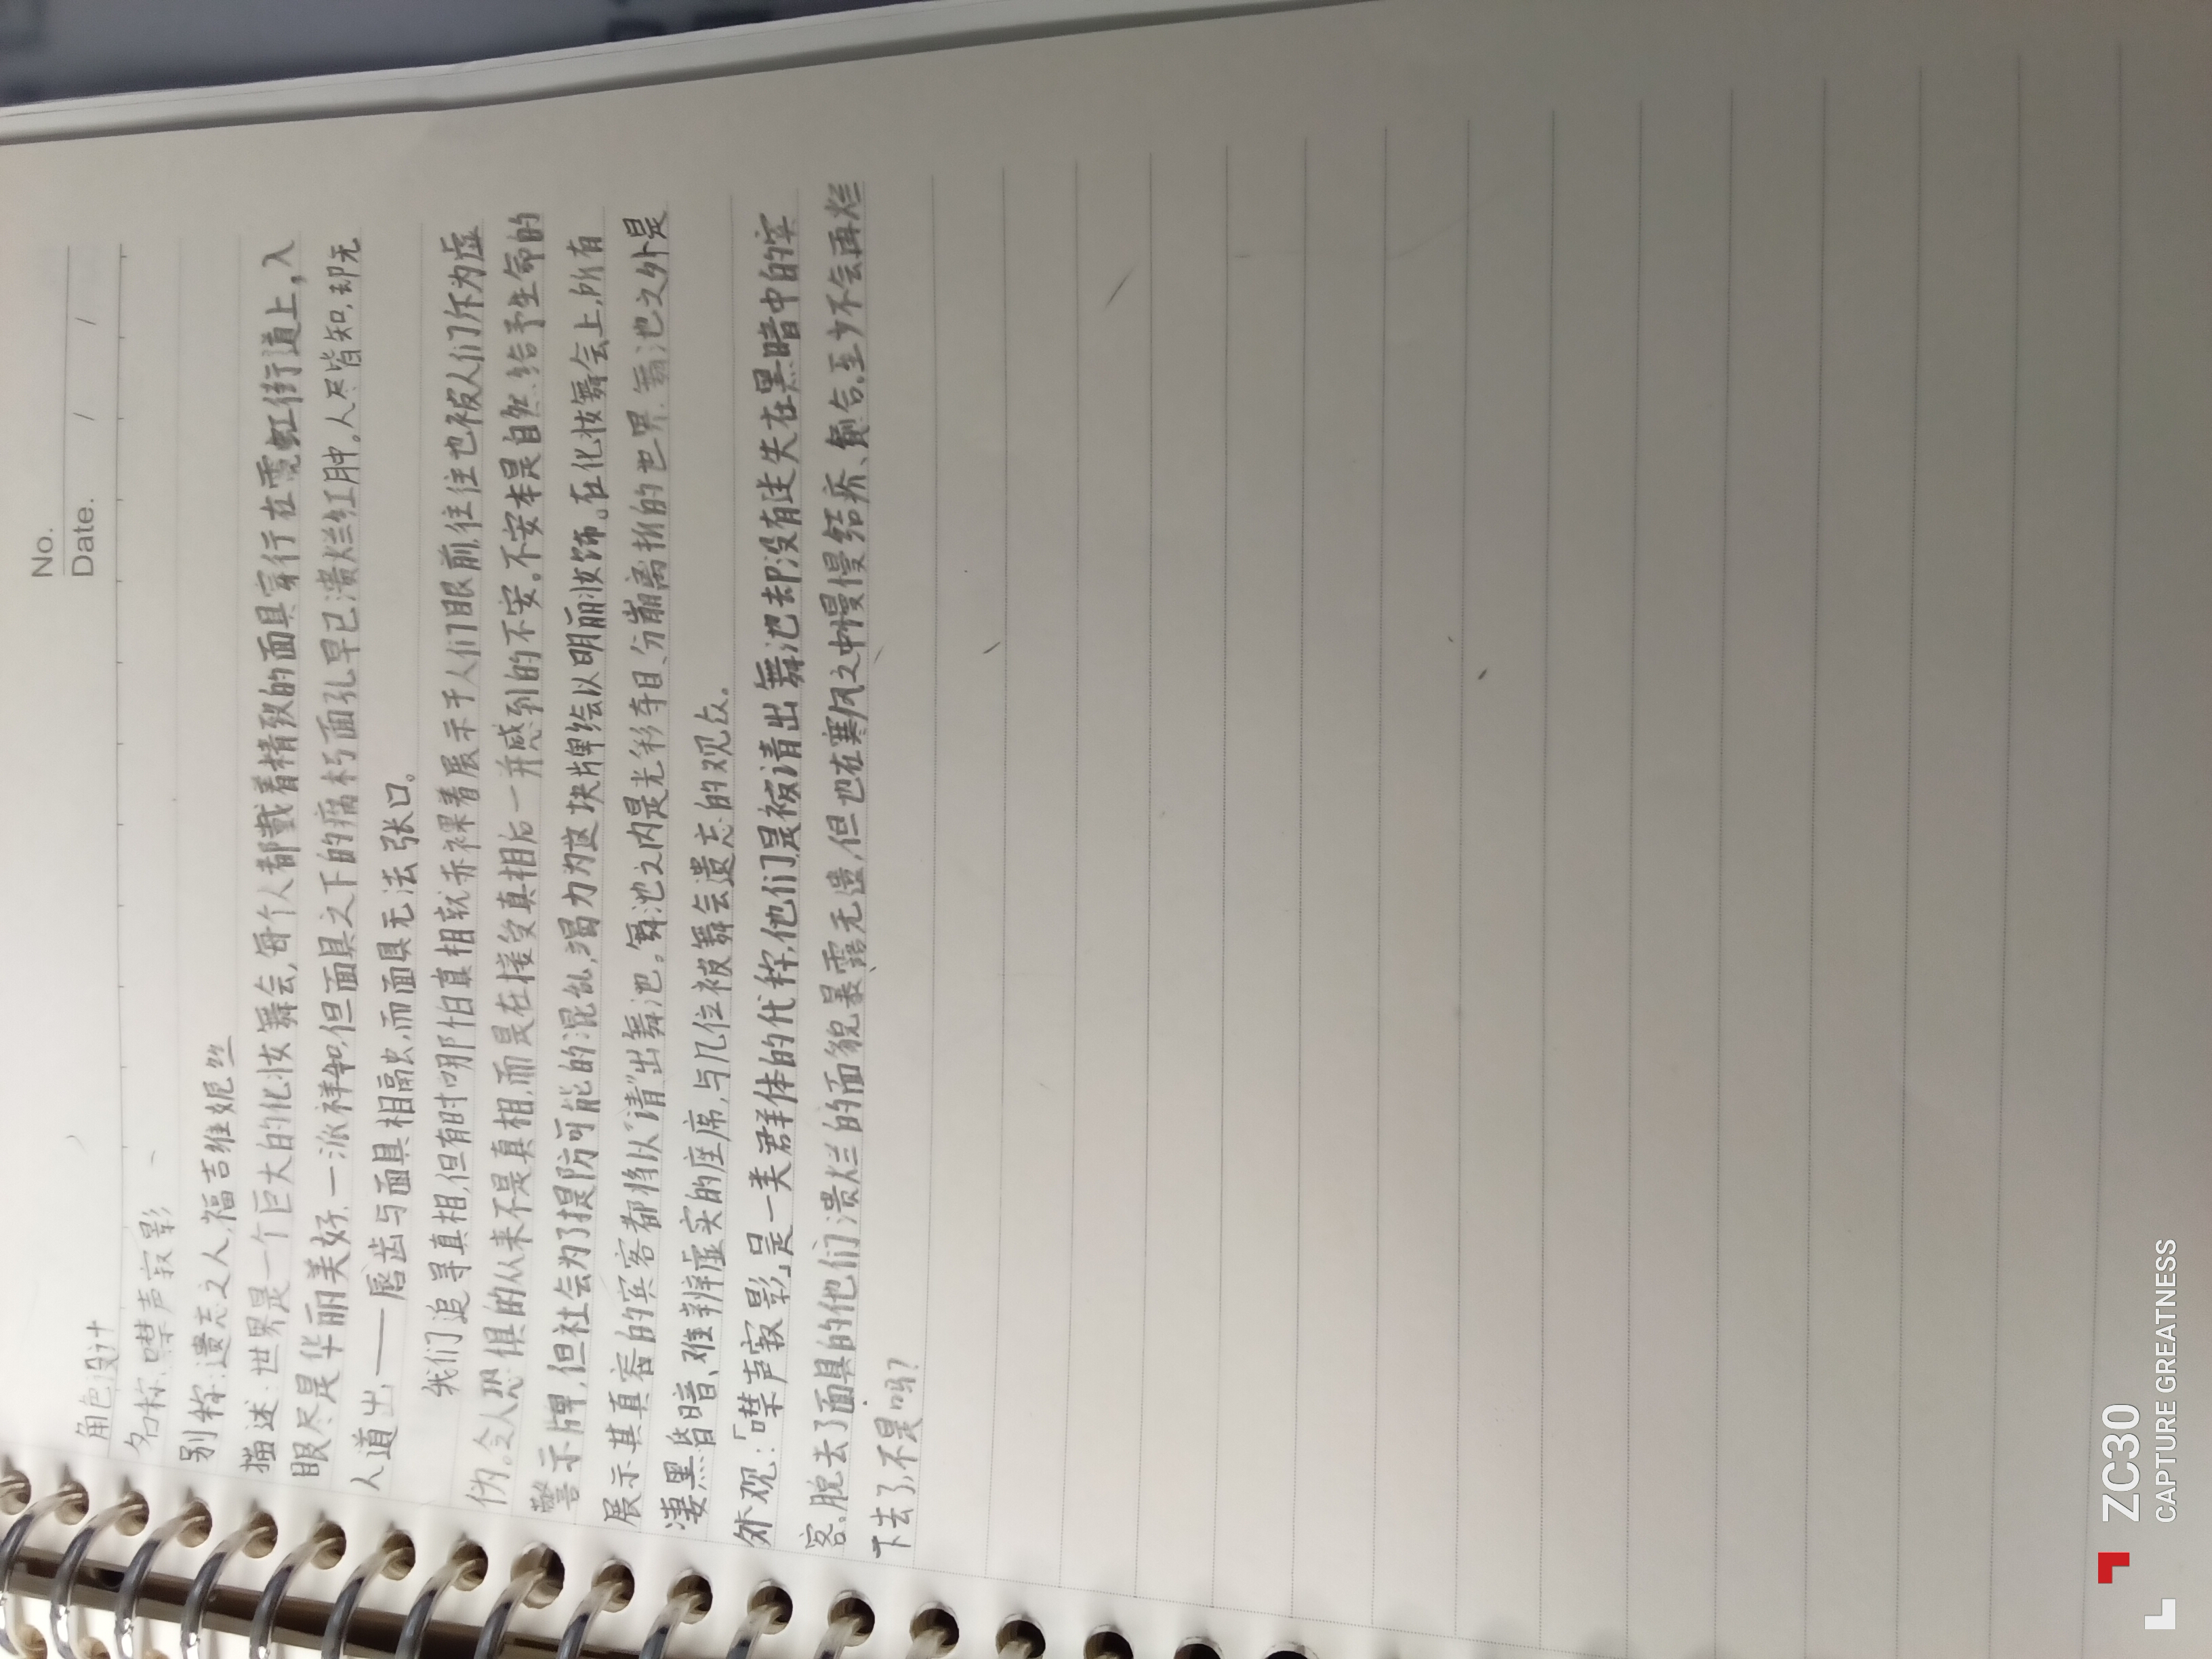 No.
Date. / /
角色设计
名称:噤声寂影
别称:遗忘之人,福吉维妮丝
描述:世界是一个巨大的化妆舞会,每个人都戴着精致的面具穿行在霓虹街道上,入
眼尽是华丽美好,一派祥和,但面具之下的腐朽面孔早已溃烂红肿。人尽皆知,却无
人道出——唇齿与面具相融,而面具无法张口。
我们追寻真相,但有时哪怕真相就赤裸着展示于人们眼前,往往也被人们斥为虚
伪。令人恐惧的从来不是真相,而是在接受真相后一并感到的不安。不安本是自然给予生命的
警示牌,但社会为了提防可能的混乱,竭力为这块牌绘以明丽妆饰。在化妆舞会上,所有
展示其真容的宾客都将以“请”出舞池。舞池之内是光彩夺目、分崩离析的世界,舞池之外是
凄黑皆暗、难辨虚实的座席,与几位被舞会遗忘的观众。
外观:「噤声寂影」是一类群体的代称,他们是被请出舞池却没有迷失在黑暗中的宾
客。脱去了面具的他们溃烂的面貌暴露无遗,但也在寒风之中慢慢结痂、愈合,至少不会再烂
下去了,不是吗?
ZC30
CAPTURE GREATNESS